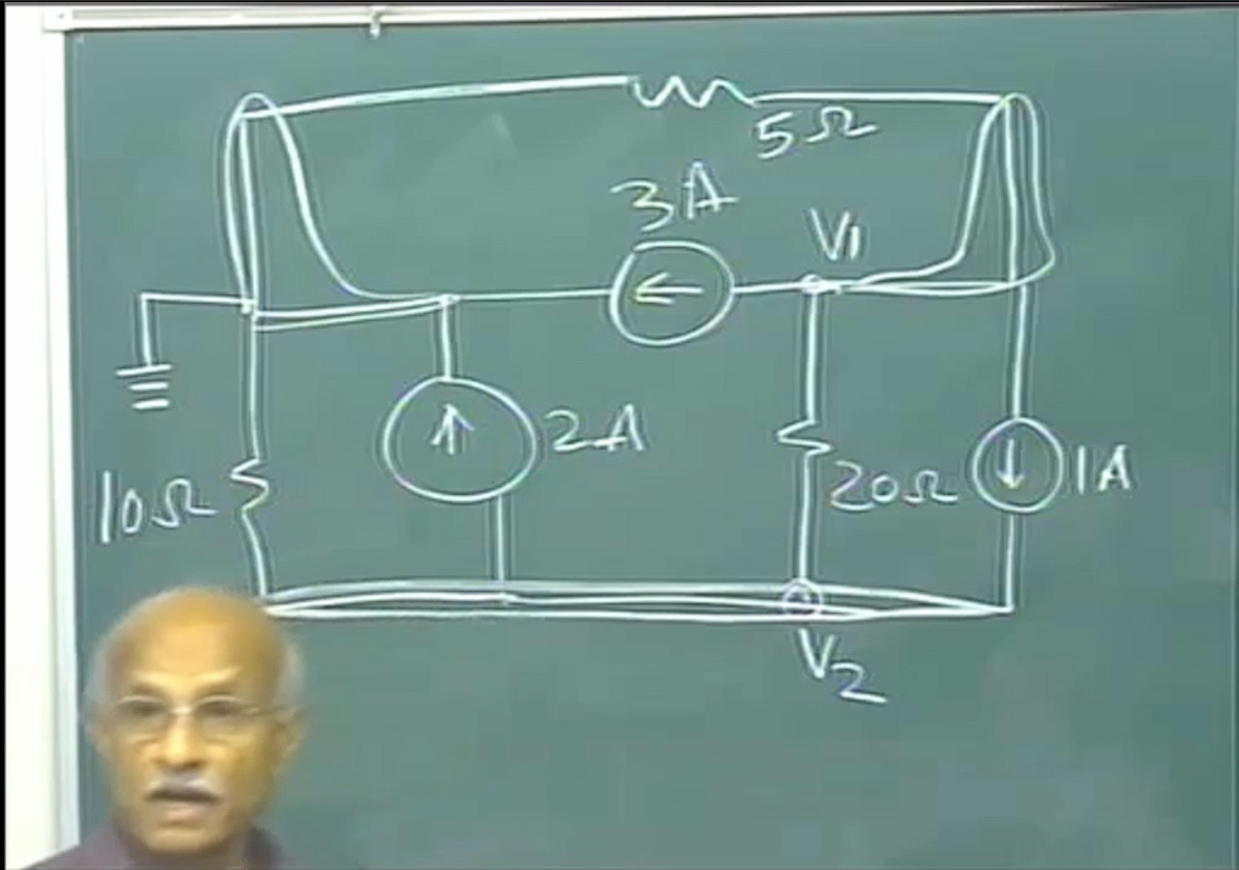 5Ω
3A
V1
2A
10Ω
20Ω
1A
V2